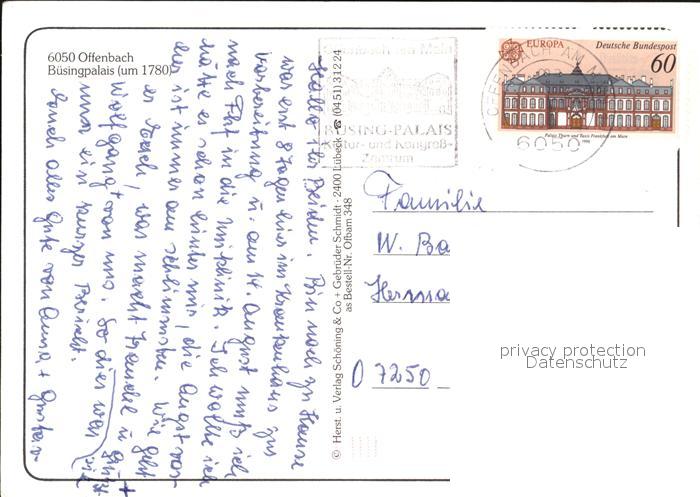 6050 Offenbach
Büsingpalais (um 1780)
Hallo Ihr Beiden. Bin noch zu Hause
war erst 8 Tage hier im Krankenhaus zur
Vorbereitung u. am 14. August muß ich
nach Ffst in die Uniklinik. Ich wollte ich
hätte es schon hinter mir, die Angst vor-
her ist immer am schlimmsten. Wie geht
es Euch, was macht Traudel u.
Wolfgang + von uns. So dies war
nur ein kurzer Bericht.
Euch alles Gute von Anna + Gustav
© Herst. u. Verlag Schöning & Co + Gebrüder Schmidt · 2400 Lübeck · ☎ (0451) 31224
as Bestell-Nr. Ofbam 348
Offenbach am Main
BÜSING-PALAIS
Kultur- und Kongreß-
Zentrum
OFFENBACH AM MAIN
6050
EUROPA Deutsche Bundespost
60
Palais Thurn und Taxis Frankfurt am Main
1990
Familie
W. Ba
Herma
O 7250
privacy protection
Datenschutz